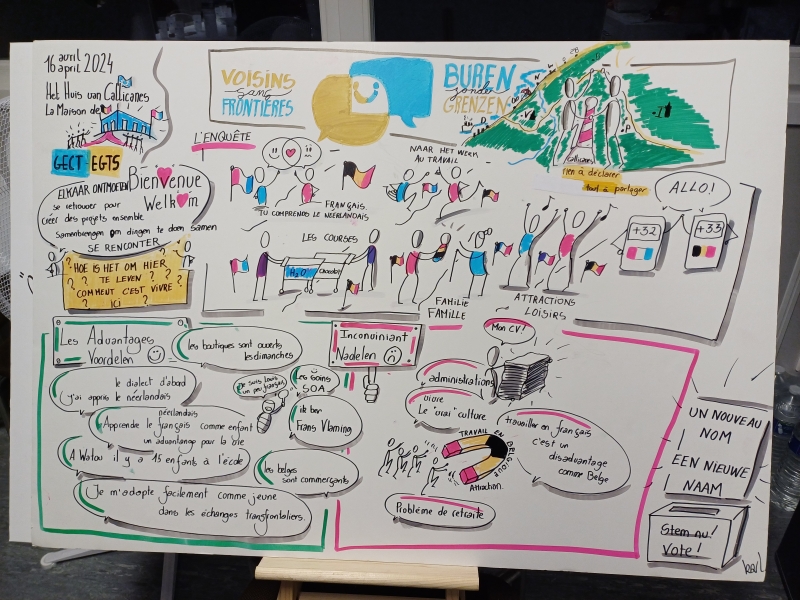 16 avril
april 2024
Het Huis van Gallicanes
La Maison de
GECT-EGTS
VOISINS
sans
FRONTIÈRES
BUREN
zonder
GRENZEN
Gallicanes
rien à déclarer
tout à partager
ELKAAR ONTMOETEN
se retrouver pour
créer des projets ensemble
Samenbrengen om dingen te doen samen
SE RENCONTER
Bienvenue
Welkom
? HOE IS HET OM HIER ?
? TE LEVEN ? ?
COMMENT C'EST VIVRE
? ICI ? ?
L'ENQUÊTE
FRANÇAIS
TU COMPRENDS LE NÉERLANDAIS
NAAR HET WERK
AU TRAVAIL
LES COURSES
H2O
Chocolat
FAMILIE
FAMILLE
ATTRACTIONS
LOISIRS
ALLO!
+32
+33
Les Advantages
Voordelen
les boutiques sont ouverts
les dimanches
le dialect d'abord
j'ai appris le néerlandais
Je suis tous
un peu français
les soins
SOA
néerlandais
Apprendre le français comme enfant
un advantange pour la vie
ik ben
Frans Vlaming
A Watou il y a 13 enfants à l'école
les belges
sont commerçants
Je m'adapte facilement comme jeune
dans les échanges transfrontaliers.
Inconviniant
Nadelen
Mon CV!
administrations
vivre
Le "vrai" culture
travailler en français
c'est un
disadvantage
comme Belge
TRAVAIL EN BELGIQUE
Attraction
Problème de retraite
UN NOUVEAU
NOM
EEN NIEUWE
NAAM
Stem nu!
Vote!